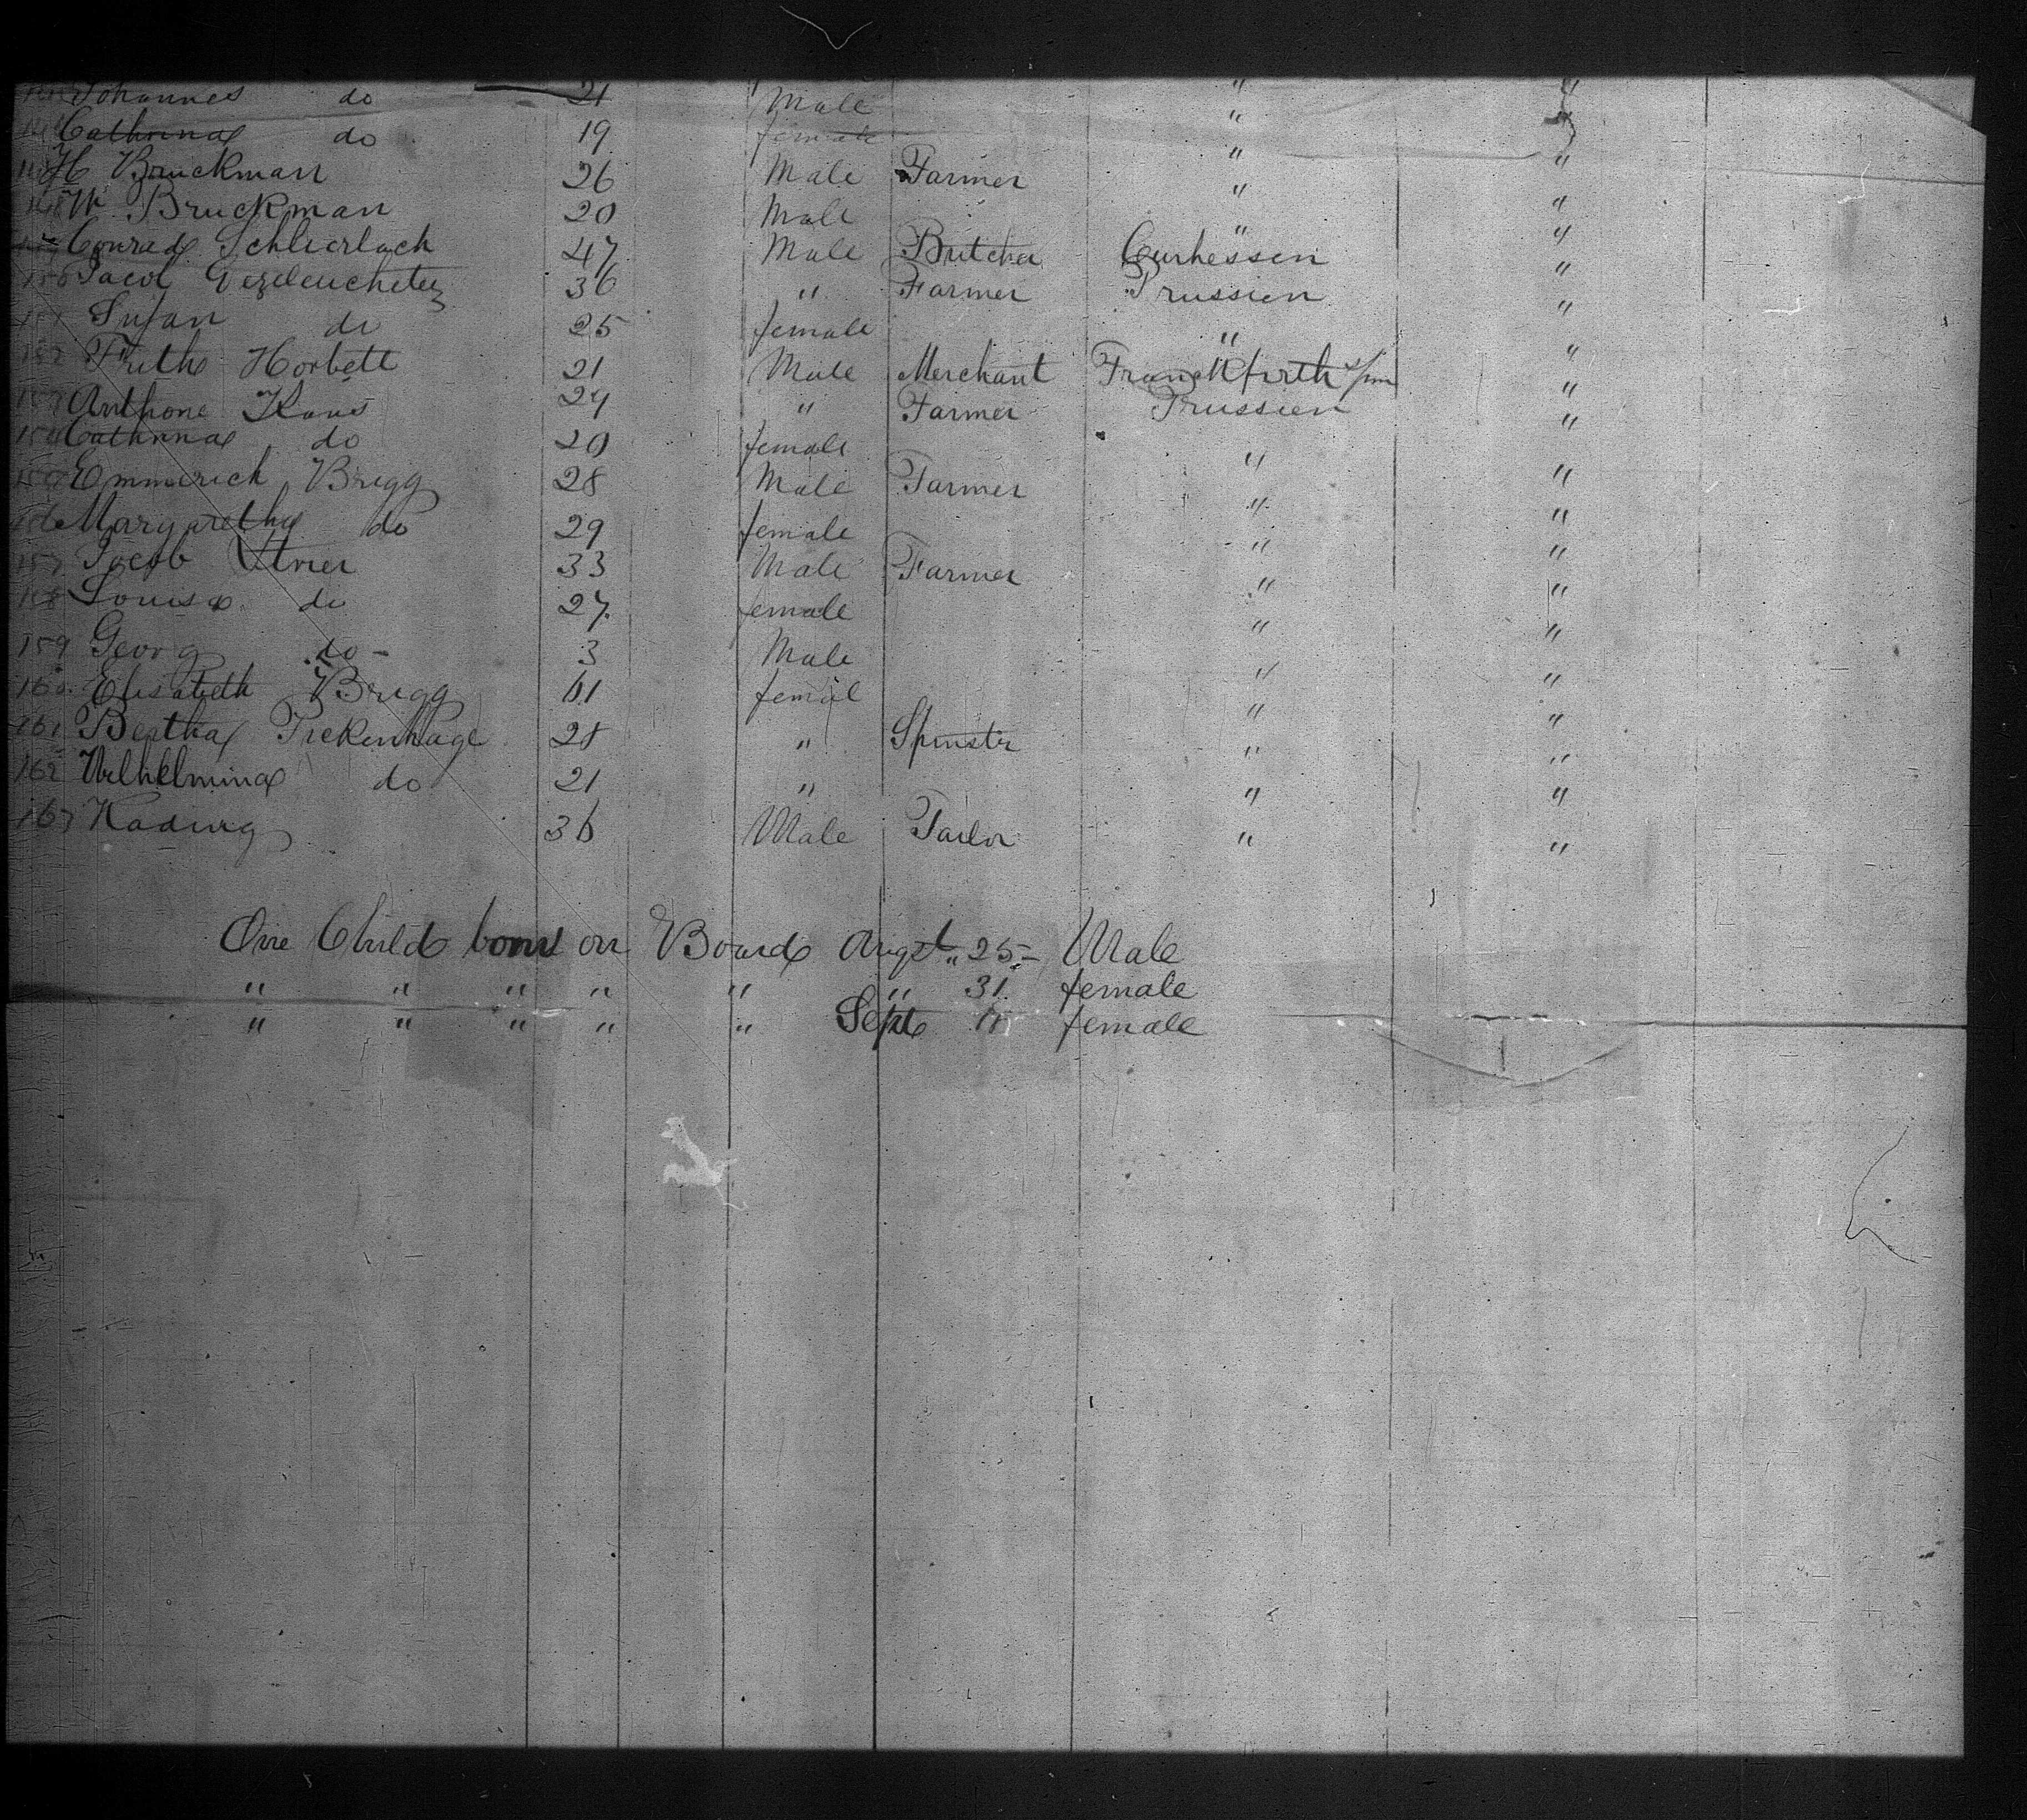 Johannes do 21 Male " "
Cathrina do 19 female " "
H Bruckman 26 Male Farmer " "
148 W Bruckman 20 Male " "
Conrad Schlierbach 47 Male Butcher Curhessen "
150 Jacob 36 " Farmer Prussien "
151 Susan do 25 female " "
152 Horbett 21 Male Merchant Franckfurth "
153 Anthone Kaus 24 " Farmer Prussien "
154 Cathrina do 20 female " "
155 Emmerich Brigg 28 Male Farmer " "
156 Margaretha do 29 female " "
157 Jacob 33 Male Farmer " "
158 Louisa do 27 female " "
159 Georg do - 3 Male " "
160 Elisabeth Brigg 61 femal " "
161 Bertha Frekenhage 28 " Spinstr " "
162 Wilhelmina do 21 " " "
163 Hading 36 Male Tailor " "
One Child born on Board Augst " 25 - Male
" " " " " " 31 female
" " " " " Sept 11 female